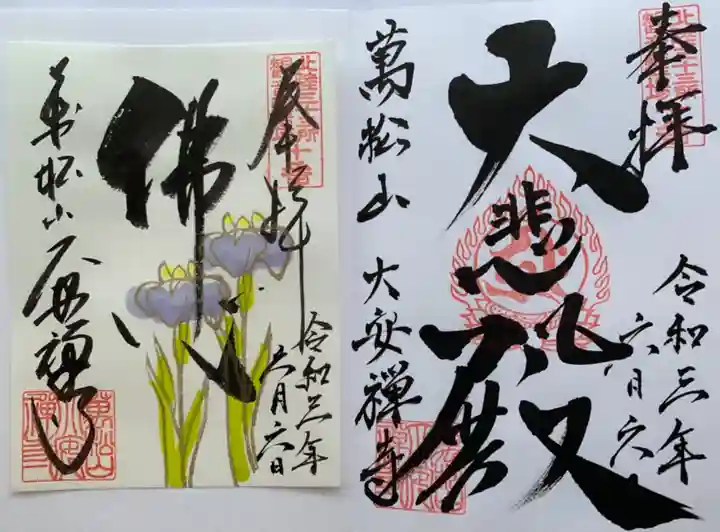 奉拝
佛心
令和三年
六月六日
萬松山 大安禅寺
奉拝
大悲殿
令和三年
六月六日
萬松山 大安禅寺